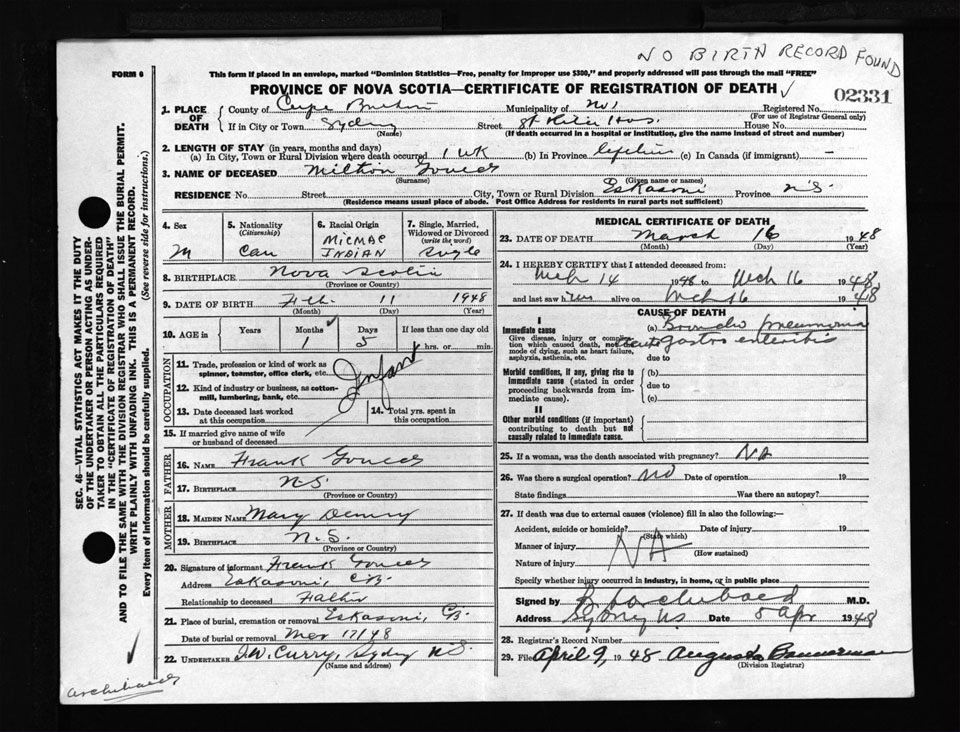 NO BIRTH RECORD FOUND
FORM 6
This form if placed in an envelope, marked "Dominion Statistics—Free, penalty for improper use $300," and properly addressed will pass through the mail "FREE"
PROVINCE OF NOVA SCOTIA—CERTIFICATE OF REGISTRATION OF DEATH ✓
02331
1. PLACE OF DEATH
County of Cape Breton Municipality of No 1 Registered No.
(For use of Registrar General only)
If in City or Town Sydney Street St Hos. House No.
(Name) (If death occurred in a hospital or institution, give the name instead of street and number)
2. LENGTH OF STAY (in years, months and days)
(a) In City, Town or Rural Division where death occurred 1 WK (b) In Province lifetime (c) In Canada (if immigrant) —
3. NAME OF DECEASED Milton
(Surname) (Given name or names)
RESIDENCE No. Street City, Town or Rural Division Eskasoni Province N.S.
(Residence means usual place of abode. Post Office Address for residents in rural parts not sufficient)
4. Sex M
5. Nationality (Citizenship) Can
6. Racial Origin MICMAC INDIAN
7. Single, Married, Widowed or Divorced (write the word) Single
8. BIRTHPLACE Nova Scotia
(Province or Country)
9. DATE OF BIRTH Feb. 11 1948
(Month) (Day) (Year)
10. AGE in Years Months 1 Days 5 If less than one day old hrs. or min.
OCCUPATION
11. Trade, profession or kind of work as spinner, teamster, office clerk, etc. Infant
12. Kind of industry or business, as cotton-mill, lumbering, bank, etc.
13. Date deceased last worked at this occupation
14. Total yrs. spent in this occupation
15. If married give name of wife or husband of deceased
FATHER
16. NAME Frank
17. BIRTHPLACE N.S.
(Province or Country)
MOTHER
18. MAIDEN NAME Mary Denny
19. BIRTHPLACE N.S.
(Province or Country)
20. Signature of informant Frank
Address Eskasoni, C.B.
Relationship to deceased Father
21. Place of burial, cremation or removal Eskasoni, C.B.
Date of burial or removal Mar 17/48
22. UNDERTAKER J.W. Curry, Sydney N.S.
(Name and address)
MEDICAL CERTIFICATE OF DEATH
23. DATE OF DEATH March 16 1948
(Month) (Day) (Year)
24. I HEREBY CERTIFY that I attended deceased from:
Mch 14 1948 to Mch 16 1948
and last saw him alive on Mch 16 1948
CAUSE OF DEATH
I
Immediate cause
Give disease, injury or complication which caused death, not mode of dying, such as heart failure, asphyxia, asthenia, etc.
(a) Broncho pneumonia
acute gastro enteritis
due to
Morbid conditions, if any, giving rise to immediate cause (stated in order proceeding backwards from immediate cause).
(b)
due to
(c)
II
Other morbid conditions (if important) contributing to death but not causally related to immediate cause.
25. If a woman, was the death associated with pregnancy? NA
26. Was there a surgical operation? NO Date of operation 19
State findings Was there an autopsy?
27. If death was due to external causes (violence) fill in also the following:—
Accident, suicide or homicide? Date of injury 19
(State which)
Manner of injury NA
(How sustained)
Nature of injury
Specify whether injury occurred in industry, in home, or in public place
Signed by Archibald M.D.
Address Sydney N.S. Date 5 Apr 1948
28. Registrar's Record Number
29. Filed April 9, 1948 Augusta Bannerman
(Division Registrar)
SEC. 46—VITAL STATISTICS ACT MAKES IT THE DUTY OF THE UNDERTAKER OR PERSON ACTING AS UNDERTAKER TO OBTAIN ALL THE PARTICULARS REQUIRED IN THE "CERTIFICATE OF REGISTRATION OF DEATH"
AND TO FILE THE SAME WITH THE DIVISION REGISTRAR WHO SHALL ISSUE THE BURIAL PERMIT.
WRITE PLAINLY WITH UNFADING INK. THIS IS A PERMANENT RECORD.
Every item of information should be carefully supplied. (See reverse side for instructions.)
Archibald